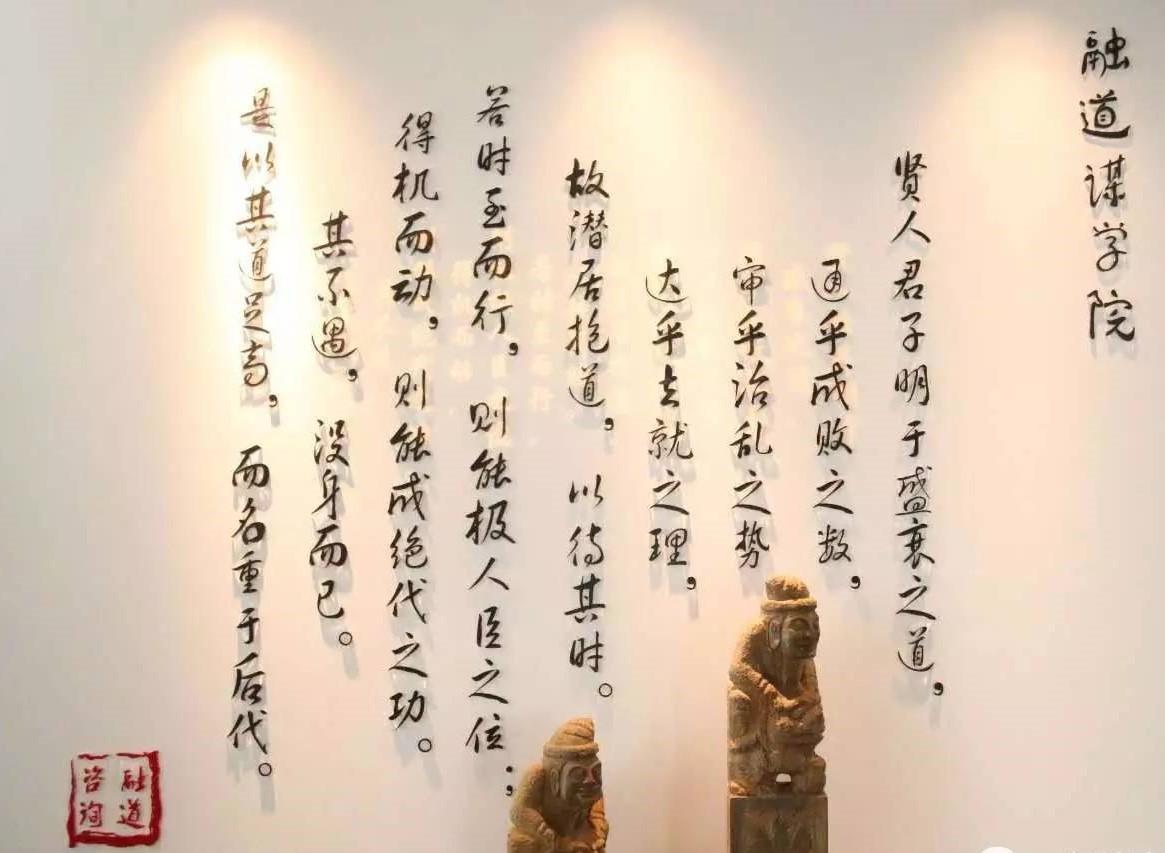 融道谋学院
贤人君子明于盛衰之道，
通乎成败之数，
审乎治乱之势
达乎去就之理，
故潜居抱道，以待其时。
若时至而行，则能极人臣之位；
得机而动，则能成绝代之功。
其不遇，没身而已。
是以其道足高，而名重于后代。
融道
咨询